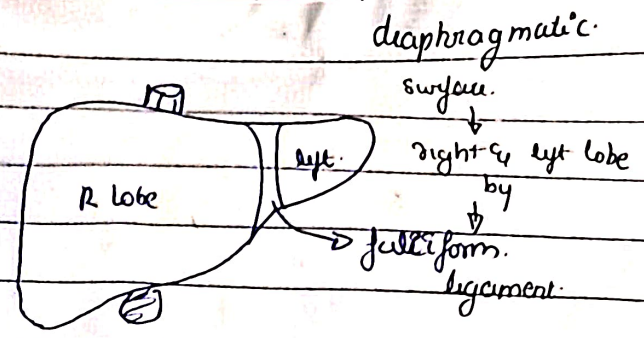 diaphragmatic.
surface.
↓
right & left lobe
by
↓
falciform.
ligament.
R lobe
left.